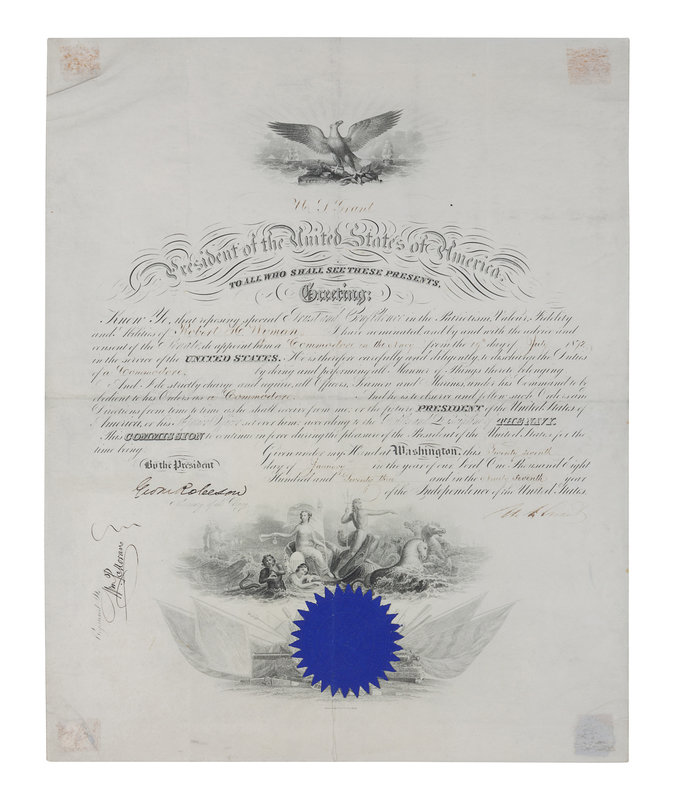 U. S. Grant
President of the United States of America.
TO ALL WHO SHALL SEE THESE PRESENTS,
Greeting:
Know Ye, that reposing special Trust and Confidence in the Patriotism, Valour, Fidelity
and Abilities of Robert H. Wyman I have nominated and by and with the advice and
consent of the Senate do appoint him a Commodore in the Navy from the 19th day of July 1872
in the service of the UNITED STATES. He is therefore carefully and diligently to discharge the Duties
of a Commodore by doing and performing all Manner of Things thereto belonging.
And I do strictly charge and require all Officers, Seamen and Marines, under his Command to be
obedient to his Orders as a Commodore And he is to observe and follow such Orders and
Directions from time to time as he shall receive from me, or the future PRESIDENT of the United States of
America, or his set over him, according to the THE NAVY.
This COMMISSION to continue in force during the pleasure of the President of the United States for the
time being. Given under my Hand at Washington, this Twenty seventh
By the President day of January in the year of our Lord One Thousand Eight
Geo M Robeson Hundred and Seventy three and in the Ninety seventh year
Secretary of the Navy of the Independence of the United States.
U. S. Grant
Registered No